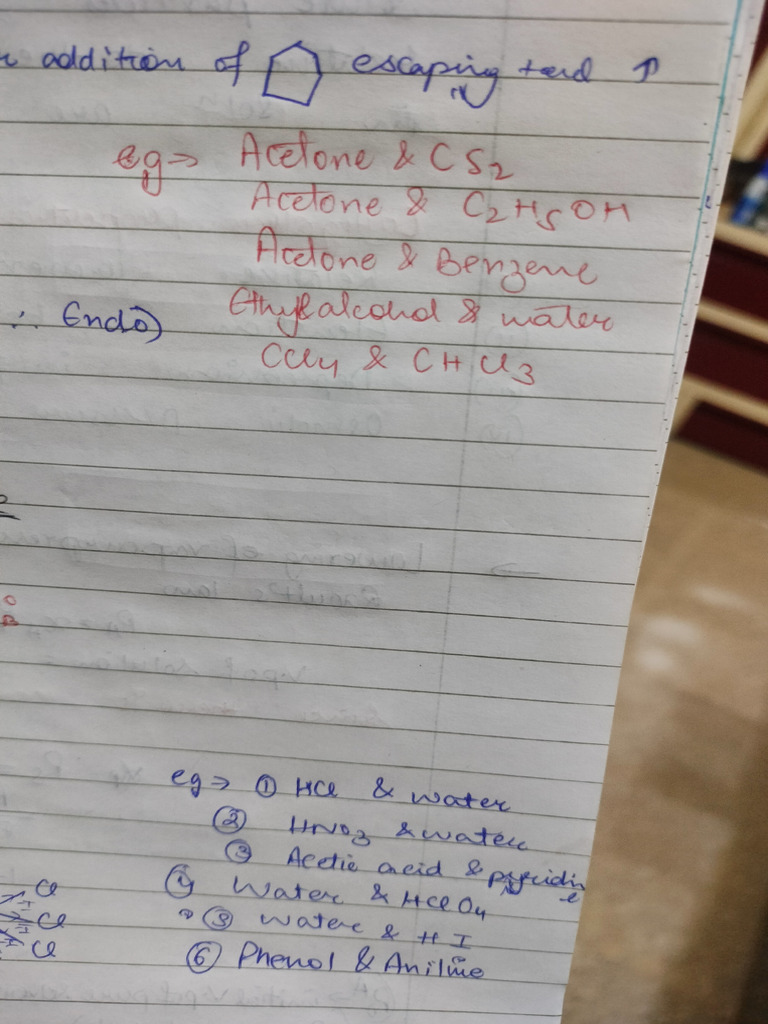 addition of escaping tend ↑
eg⇒ Acetone & CS2
Acetone & C2H5OH
Acetone & Benzene
∴ Endo) Ethyl alcohol & water
CCl4 & CHCl3
eg → ① HCl & water
② HNO3 & water
③ Acetic acid & pyridine
Cl ④ Water & HClO4
Cl ⑤ Water & HI
Cl ⑥ Phenol & Aniline